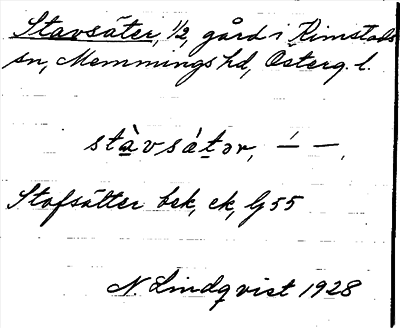 Stavsäter, 1/2, gård i Kimstads
sn, Memmings hd, Österg. l.
stàvsá̀tər, –́ –,
Stafsätter bek, ek, G 55
N. Lindqvist 1928